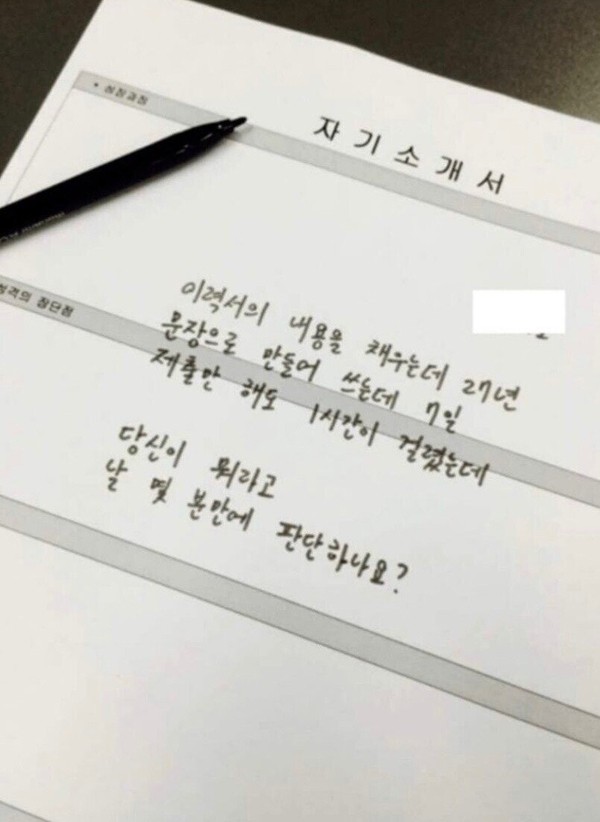 자기소개서
• 성장과정
이력서의 내용을 채우는데 27년
문장으로 만들어 쓰는데 7일
제출만 해도 1시간이 걸렸는데
성격의 장단점
당신이 뭐라고
날 몇 분만에 판단하나요?